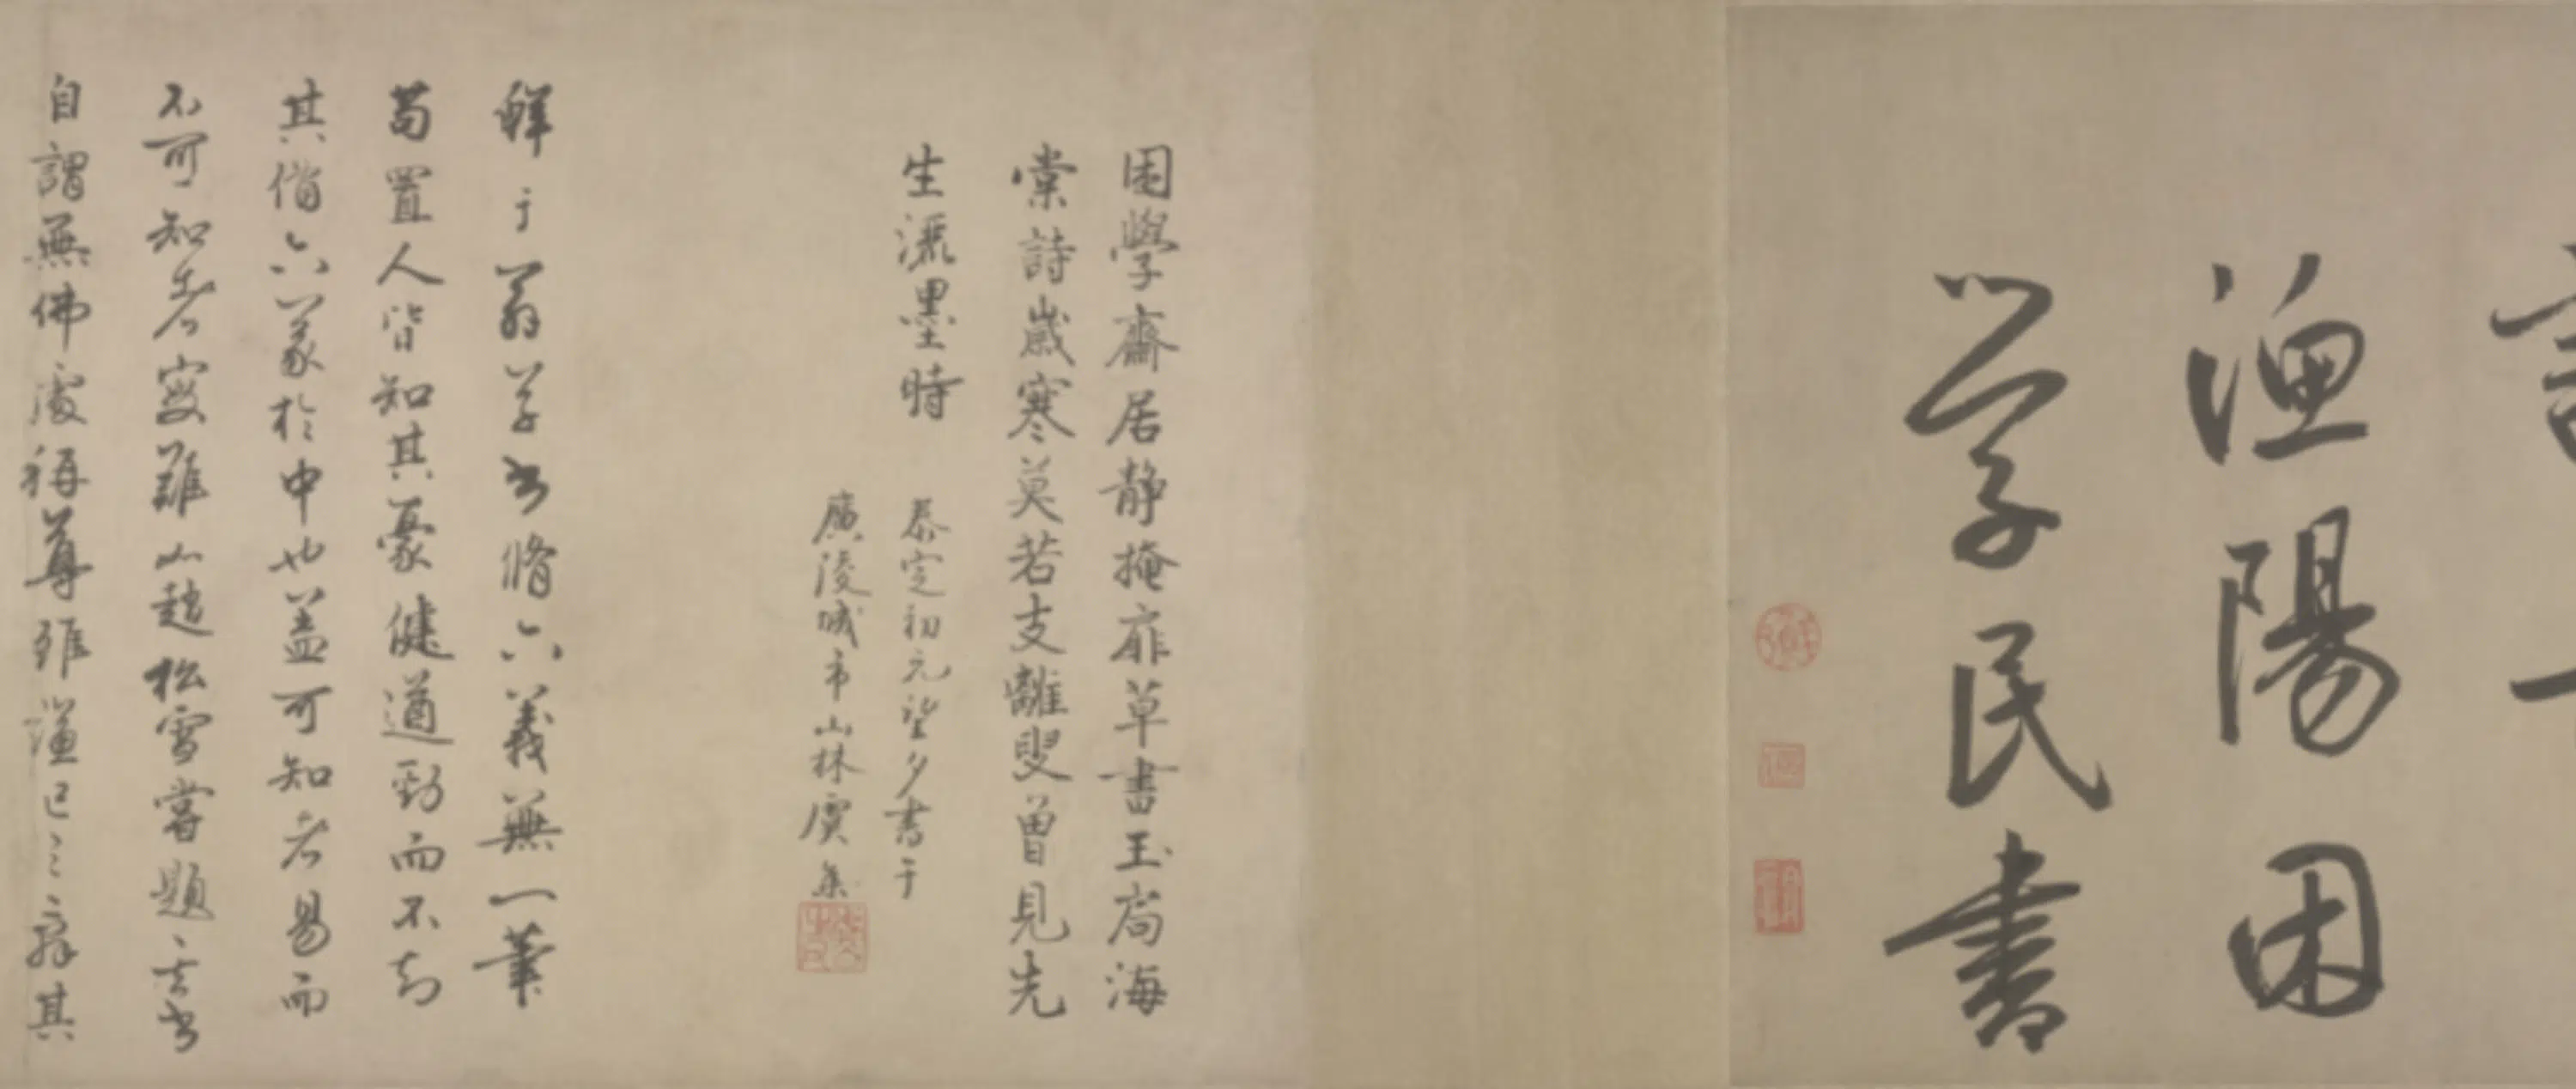 漁陽困
学民書
困學齋居静掩扉草書玉局海
棠詩歲寒莫若支離叟曽見先
生灑墨時
泰定初元望夕書于
廣陵城市山林虞集
鮮于翁草書脩六義無一筆
苟置人皆知其豪健遒勁而不知
其偕六義於中也蓋可知者易而
不可知者寔難以趙松雪嘗題云書
自謂無佛處稱尊雖謙己之辭其